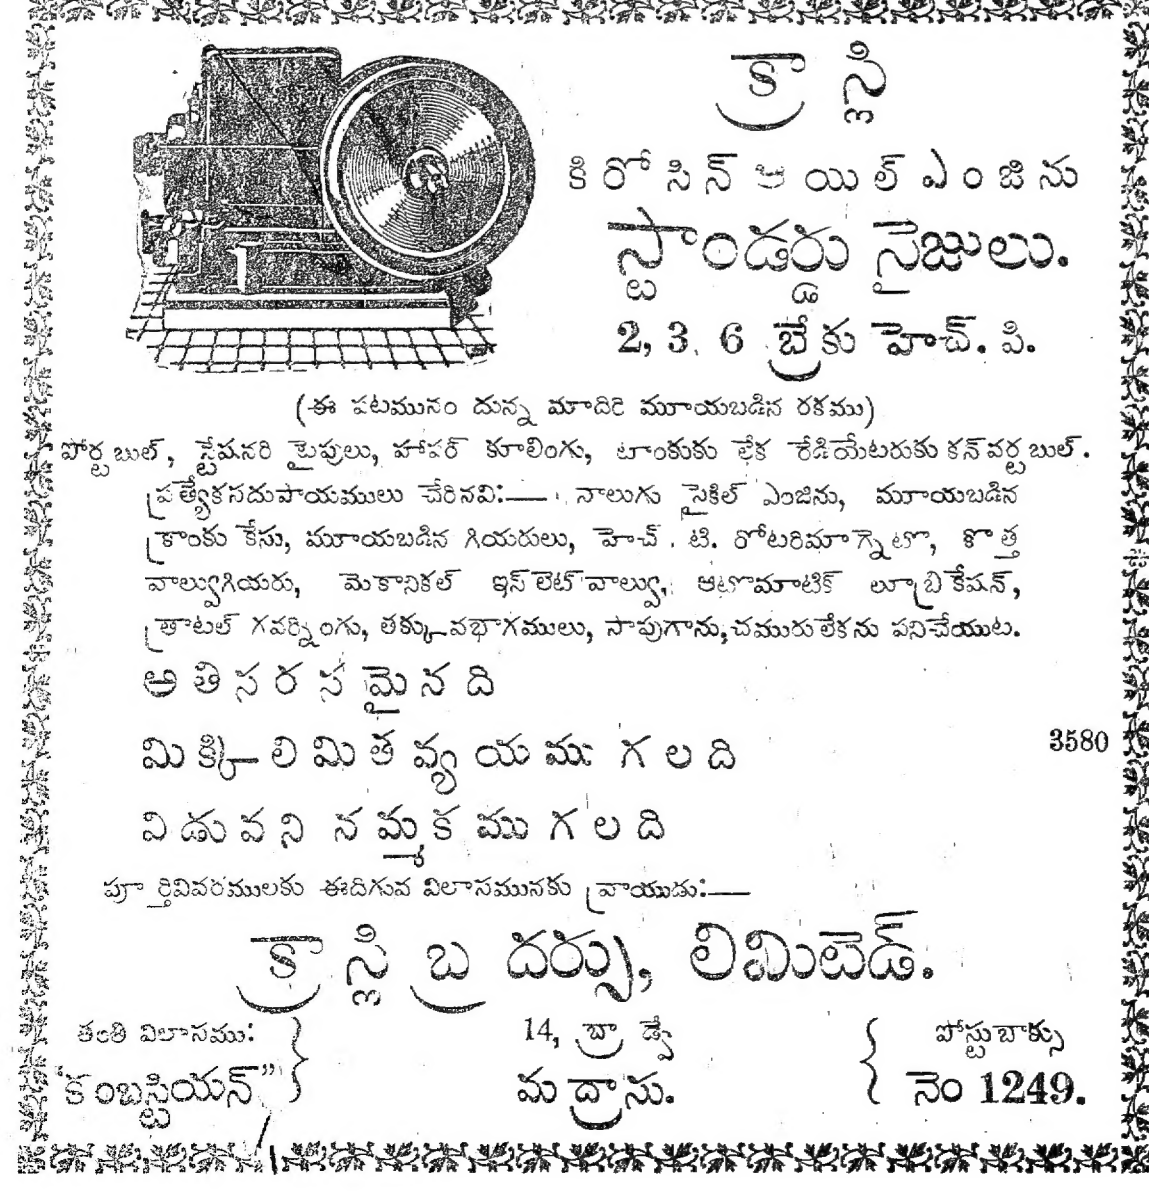 క్రాస్లి
కిరోసిన్ ఆయిల్ ఎంజిను
స్టాండర్డు సైజులు.
2, 3, 6 బ్రేకు హెచ్. పి.
(ఈ పటమునం దున్న మాదిరి మూయబడిన రకము)
పోర్టబుల్, స్టేషనరి టైపులు, హాపర్ కూలింగు, టాంకుకు లేక రేడియేటరుకు కన్‌వర్టబుల్.
ప్రత్యేకసదుపాయములు చేరినవి:— నాలుగు సైకిల్ ఎంజిను, మూయబడిన
క్రాంకు కేసు, మూయబడిన గియరులు, హెచ్. టి. రోటరిమాగ్నెటొ, కొత్త
వాల్వుగియరు, మెకానికల్ ఇన్‌లెట్‌వాల్వు, ఆటొమాటిక్ లూబ్రికేషన్,
త్రాటల్ గవర్నింగు, తక్కువభాగములు, సాపుగాను, చమురులేకను పనిచేయుట.
అతిసరసమైనది
మిక్కిలిమితవ్యయము గలది
విడువని నమ్మకముగలది
3580
పూర్తివివరములకు ఈదిగువ విలాసమునకు వ్రాయుడు:—
క్రాస్లి బ్రదర్సు, లిమిటెడ్.
తంతి విలాసము:
"కంబస్టియన్"
14, బ్రాడ్వే
మద్రాసు.
పోస్టుబాక్సు
నెం 1249.